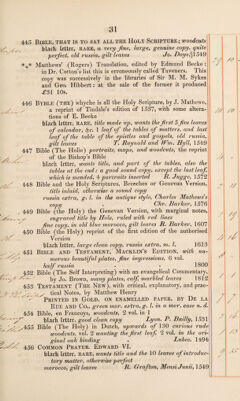 31
445 BIBLE, THAT IS TO SAY ALL THE HOLY SCRIPTURE; woodcuts
black letter, RARE, a very fine, large, genuine copy, quite
perfect, old russia, gilt leaves Jo. Daye, 1549
*** Matthews' (Rogers) Translation, edited by Edmund Becke:
in Dr. Cotton's list this is erroneously called Taverners. This
copy was successively in the libraries of Sir M. M. Sykes
and Geo. Hibbert: at the sale of the former it produced
£31 10s.
446 BYBLE (THE) whyche is all the Holy Scripture, by J. Mathewe,
a reprint of Tindale's edition of 1537, with some altera-
tions of E. Becke
black letter, RARE, title made up, wants the first 5 five leaves
of calendar, &c. 1 leaf of the tables of matters, and last
leaf of the table of the epistles and gospels, old russia,
gilt leaves T. Raynalde and Wm. Hyll, 1549
447 Bible (The Holie) portraits, maps, and woodcuts, the reprint
of the Bishop's Bible
black letter, wants title, and part of the tables, also the
tables at the end: a good sound copy, except the last leaf,
which is mended, 2 portraits inserted R. Jugge, 1572
448 Bible and the Holy Scriptures, Breeches or Genevan Version,
title inlaid, otherwise a sound copy
russia extra, g. l. in the antique style, Charles Mathews's
copy Chr. Barker, 1576
449 Bible (the Holy) the Genevan Version, with marginal notes,
engraved title by Hole, ruled with red lines
fine copy, in old blue morocco, gilt leaves R. Barker, 1607
450 Bible (the Holy) reprint of the first edition of the authorised
Version
black letter, large clean copy, russia extra, m. l. 1613
451 BIBLE AND TESTAMENT, MACKLIN'S EDITION, with nu-
merous beautiful plates, fine impressions, 6 vol.
half russia 1800
452 Bible (The Self Interpreting) with an evangelical Commentary,
by Jo. Brown, many plates, calf, marbled leaves 1812
453 TESTAMENT (THE NEW), with critical, explanatory, and prac-
tical Notes, by Matthew Henry
PRINTED IN GOLD, ON ENAMELLED PAPER, BY DE LA
RUE AND CO., green mor. extra, g. l. in a mor. case n. d.
454 Bible, en Francoys, woodcuts, 2 vol. in 1
black letter, good clean copy Lyon. P. Bailly, 1531
455 Bible (The Holy) in Dutch, upwards of 130 curious rude
woodcuts, vol. 2 wanting the first leaf, 2 vol. in the ori-
ginal oak binding Lubec. 1494
456 COMMON PRAYER, EDWARD VI.
black letter, RARE, wants title and the 10 leaves of introduc-
tory matter, otherwise perfect
morocco, gilt leaves R. Grafton, Mensi Junii, 1549